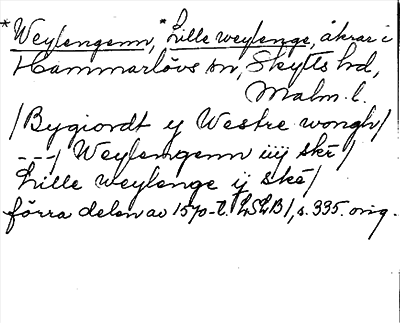 *Weylengenn, *Lille weylenge, åkrar i
Hammarlövs sn, Skytts hd,
Malm. l.
/Bygiordt ij Westre wongh/
---/ Weylengenn iiij skē/
Lille weylenge ij skē/
förra delen av 1570-t. LSLB1, s. 335. orig.